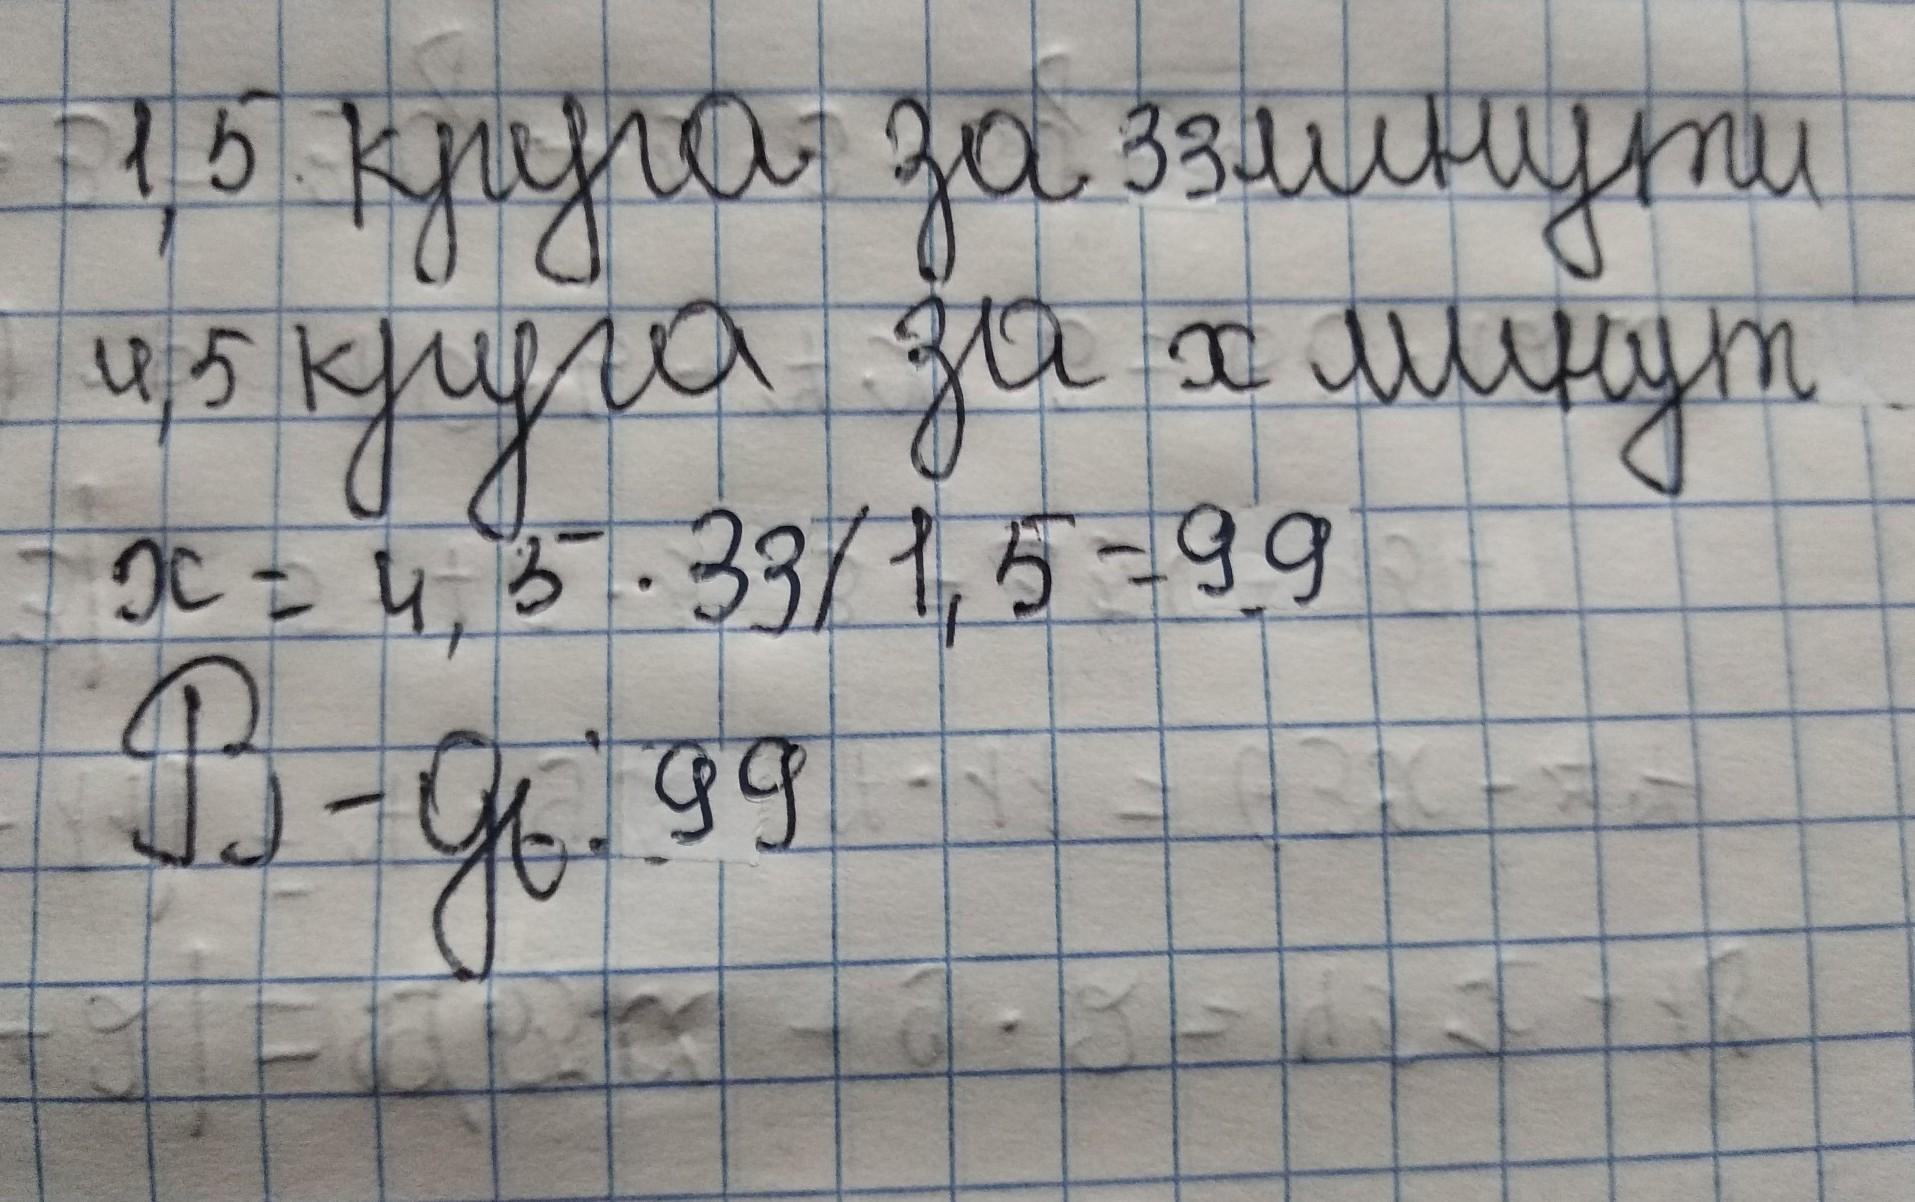 1,5 круга за 33 минути
4,5 круга за х минут
х = 4,5 · 33 / 1,5 = 99
В-дь: 99